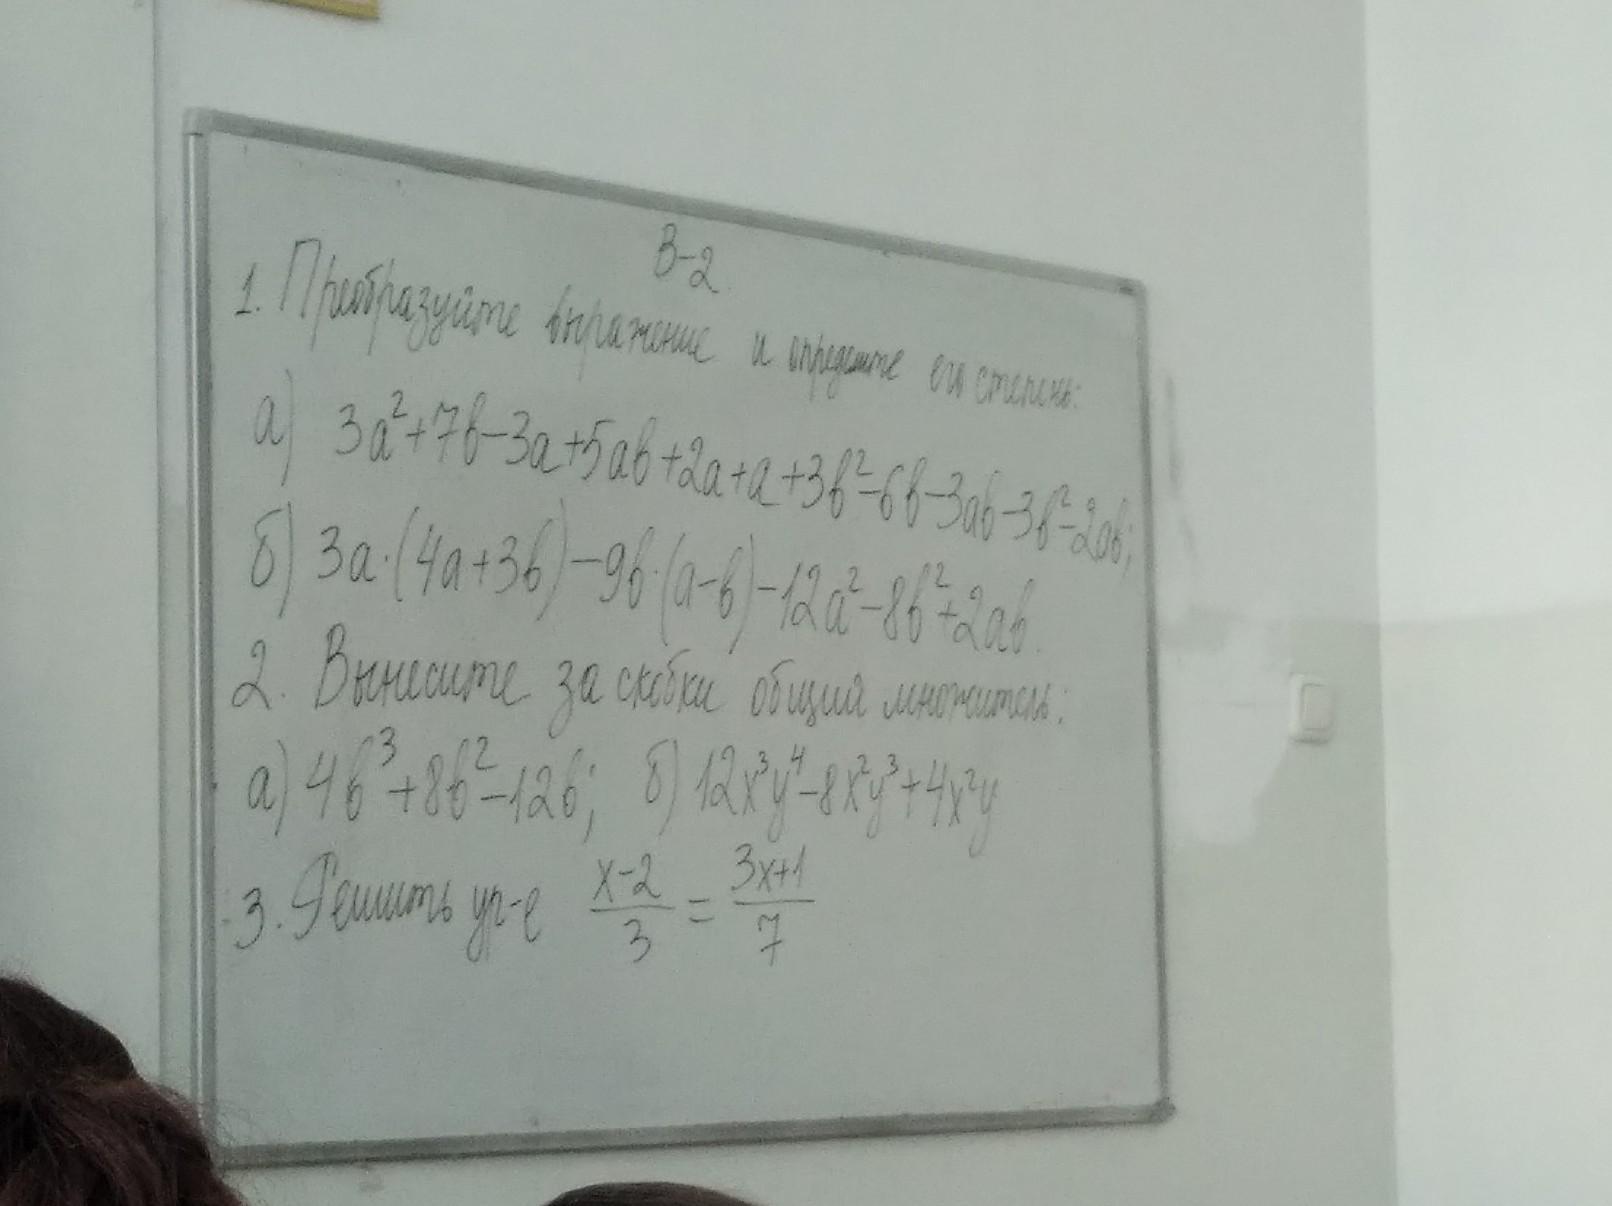 В-2.
1. Преобразуйте выражение и определите его степень:
а) 3a²+7b-3a+5ab+2a+a+3b²-6b-3ab-3b²-2ab;
б) 3a·(4a+3b)-9b·(a-b)-12a²-8b²+2ab.
2. Вынесите за скобки общий множитель:
а) 4b³+8b²-12b; б) 12x³y⁴-8x²y³+4x²y
3. Решить ур-е (x-2)/3 = (3x+1)/7